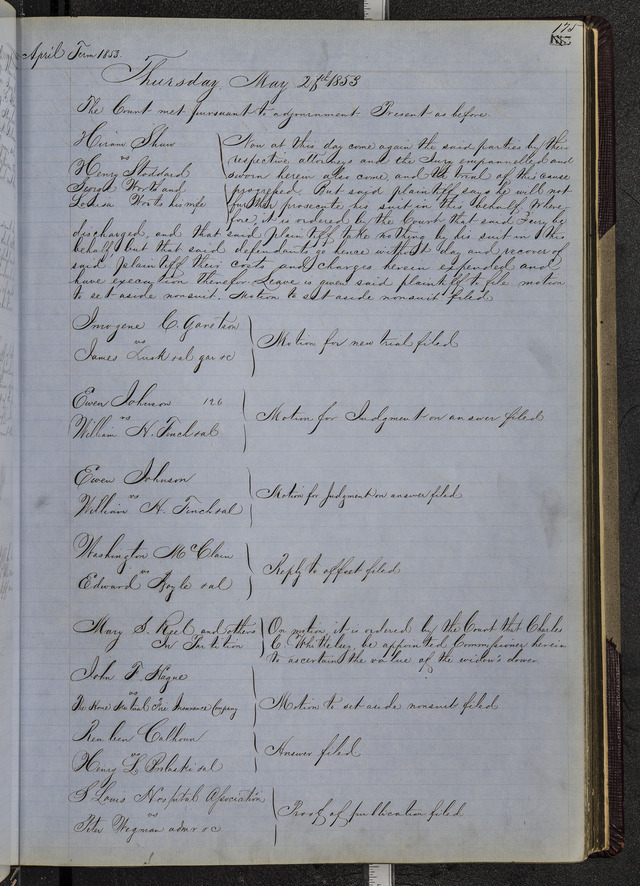 175
April Term 1853
Thursday May 26th 1853
The Court met pursuant to adjournment Present as before
Hiram Shaw
vs
Henry Stoddard
George Worts and
Louisa Worts his wife
Now at this day come again the said parties by their
respective attorneys and the Jury empannelled and
sworn herein also come, and the trial of this cause
progressed. But said plaintiff says he will not
further prosecute his suit in this behalf, Where
fore, it is ordered by the Court that said Jury be
discharged, and that said plaintiff take nothing by his suit in this
behalf but that said defendants go hence without day and recover of
said plaintiff their costs and charges herein expended and
have execution therefor. Leave is given said plaintiff to file motion
to set aside nonsuit. Motion to set aside nonsuit filed
Imogene C. Garetson
vs
James Lusk et al gar &c
Motion for new trial filed
Ewen Johnson 126
vs
William H. Finch et al
Motion for Judgment on answer filed
Ewen Johnson
vs
William H. Finch et al
Motion for Judgment on answer filed
Washington McClain
vs
Edward Hoyle et al
Reply to offset filed
Mary S. Keel and others
In Partition
On motion it is ordered by the Court that Charles
C. Whittelsey be appointed Commissioner herein
to ascertain the value of the widow's dower
John T. Hague
vs
The Home Mutual Fire Insurance Company
Motion to set aside nonsuit filed
Reuben Calhoun
vs
Henry L. et al
Answer filed
St Louis Hospital Association
vs
Peter Wegman admr &c
Proof of publication filed